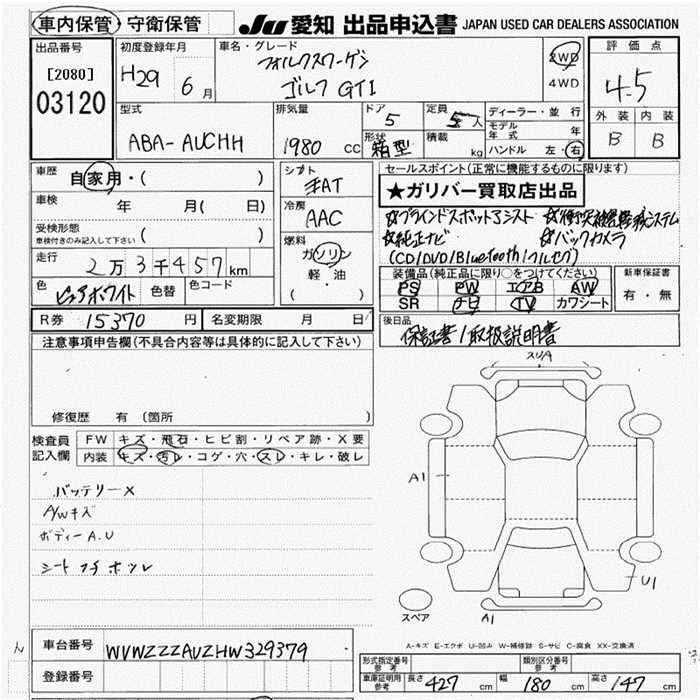 車内保管・守衛保管 JU 愛知 出品申込書 JAPAN USED CAR DEALERS ASSOCIATION
出品番号 初度登録年月 車名・グレード 評価点
[2080] H29 6月 フォルクスワーゲン 2WD 4.5
03120 ゴルフGTI 4WD 外装 内装
型式 排気量 ドア 定員 ディーラー・並行 B B
ABA-AUCHH 1980 cc 5 5人 モデル年式 年
形状 箱型 積載 kg ハンドル 左・右
車歴 自家用・( ) シフト セールスポイント(正常に機能するものに限ります)
車検 年 月( 日) AT ★ガリバー買取店出品
受検形態 冷房 ☆ブラインドスポットアシスト ☆衝突被害軽減システム
車検付きのみ記入して下さい ( ) AAC ☆純正ナビ ☆バックカメラ
走行 2万3千457km 燃料 ガソリン (CD/DVD/Bluetooth/フルセグ)
軽・油 装備品(純正品に限り○をつけてください) 新車保証書
色 ピュアホワイト 色替 色コード ( ・ ) PS PW エアB AW 有・無
SR ナビ TV カワシート
R券 15370円 名変期限 月 日 後日品
保証書/取扱説明書
注意事項申告欄(不具合内容等は具体的に記入して下さい)
スリA
修復歴 有(箇所
検査員 FW キズ・飛石・ヒビ割・リペア跡・X要
記入欄 内装 キズ・汚レ・コゲ・穴・スレ・キレ・破レ
A1
バッテリーX
A/Wキズ
ボディーA.U
シートフチホツレ
U1
スペア A1
A-キズ E-エクボ U-凹み W-補修跡 S-サビ C-腐食 XX-交換済
車台番号 WVWZZZAUZHW329379
形式指定番号 参考 類別区分番号 参考
登録番号 車庫証明用 参考 長さ 427cm 幅 180cm 高さ 147cm